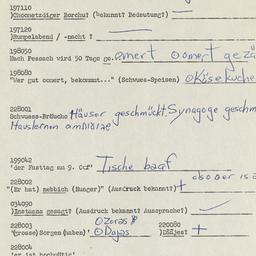 197110
)Choonetzdiger Borchu! (bekannt? Bedeutung?)
197120
)Rumpelabend / -nacht ?
198050
Nach Pessach wird 50 Tage ge.. omert
198080
"Wer gut oomert, bekommt..." (Schwues-Speisen) Käsekuche
228001
Schwuess-Bräuche Häuser geschmückt, Synagoge geschm
199042
"der Fasttag am 9. Oof" Tische baaf
228002
"(Er hat) nebbich (Hunger)" (Ausdruck bekannt?) +
034090
)Instanz gesagt? (Ausdruck bekannt? Aussprache?)
228003
"(grosse) Sorgen (haben)" Zoras
Dajas
220080
)Däjes? +
228004